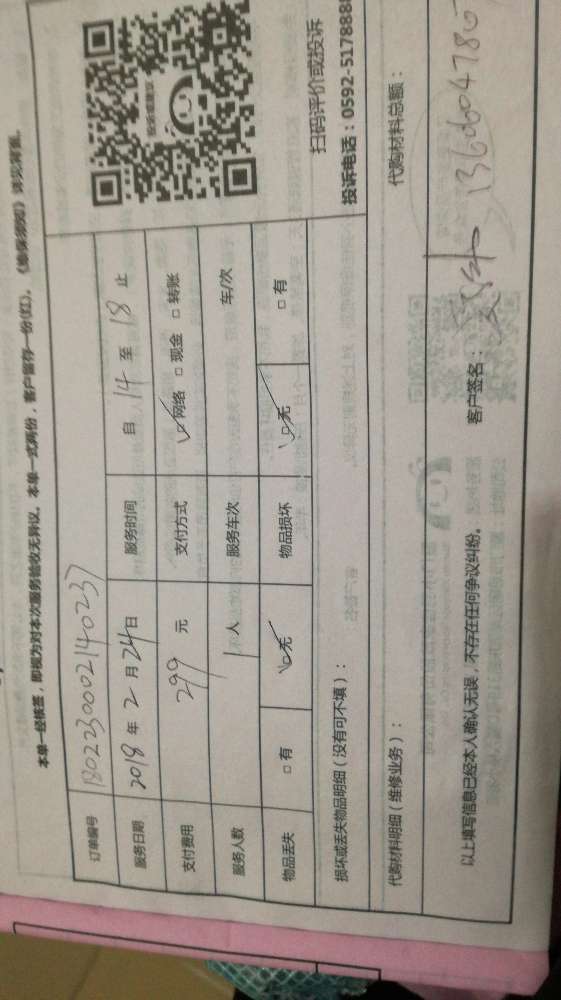 本单一经核签，即视为对本次服务验收无异议。本单一式两份，客户留存一份(红)。《维保须知》详见背面。
订单编号 1802230002140237
服务日期 2018 年 2 月 24 日 服务时间 自 14 至 18 止
支付费用 299 元 支付方式 网络 □ 现金 □ 转账
服务人数 1 人 服务车次 车/次
物品丢失 □ 有 □ 无 物品损坏 □ 无 □ 有
投诉或建议
扫码评价或投诉
投诉电话：0592-5178888
损坏或丢失物品明细（没有可不填）：
代购材料明细（维修业务）： 代购材料总额：
以上填写信息已经本人确认无误，不存在任何争议纠纷。 客户签名：